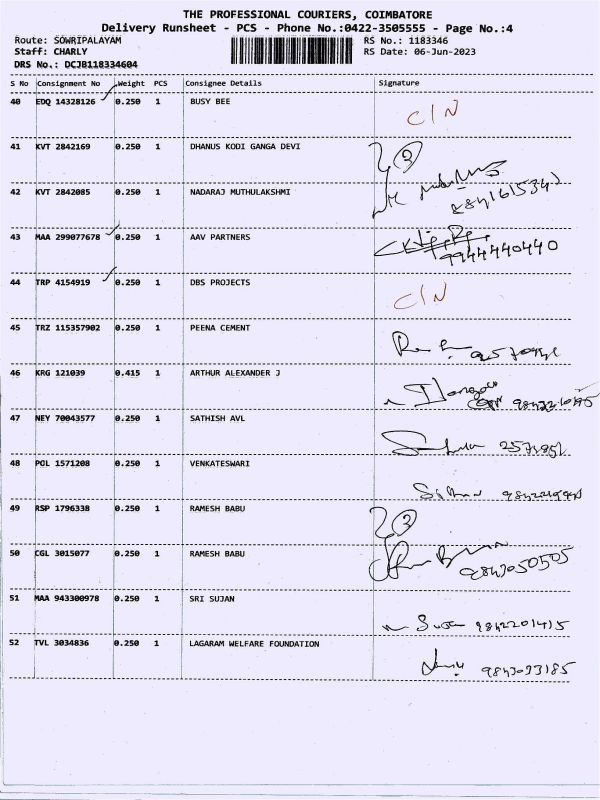 THE PROFESSIONAL COURIERS, COIMBATORE
Delivery Runsheet - PCS - Phone No.:0422-3505555 - Page No.:4
Route: SOWRIPALAYAM RS No.: 1183346
Staff: CHARLY RS Date: 06-Jun-2023
DRS No.: DCJB118334604
S No Consignment No Weight PCS Consignee Details Signature
40 EDQ 14328126 0.250 1 BUSY BEE C/N
41 KVT 2842169 0.250 1 DHANUS KODI GANGA DEVI
42 KVT 2842085 0.250 1 NADARAJ MUTHULAKSHMI
43 MAA 299077678 0.250 1 AAV PARTNERS 9944440440
44 TRP 4154919 0.250 1 DBS PROJECTS C/N
45 TRZ 115357902 0.250 1 PEENA CEMENT
46 KRG 121039 0.415 1 ARTHUR ALEXANDER J
47 NEY 70043577 0.250 1 SATHISH AVL
48 POL 1571208 0.250 1 VENKATESWARI
49 RSP 1796338 0.250 1 RAMESH BABU
50 CGL 3015077 0.250 1 RAMESH BABU 9843050505
51 MAA 943300978 0.250 1 SRI SUJAN 9842201415
52 TVL 3034836 0.250 1 LAGARAM WELFARE FOUNDATION 9843093185